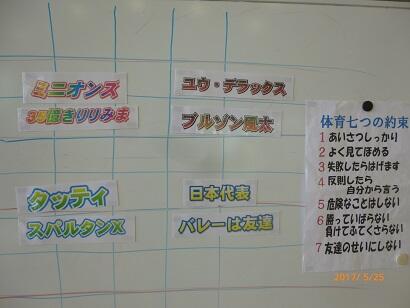 ミニオンズ
35億きりりみま
ユウ・デラックス
ブルゾン風太
タッティ
スパルタンX
日本代表
バレーは友達
体育七つの約束
1 あいさつしっかり
2 よく見てほめる
3 失敗したらはげます
4 反則したら
自分から言う
5 危険なことはしない
6 勝っていばらない
負けてふてくさらない
7 友達のせいにしない
2017/5/25